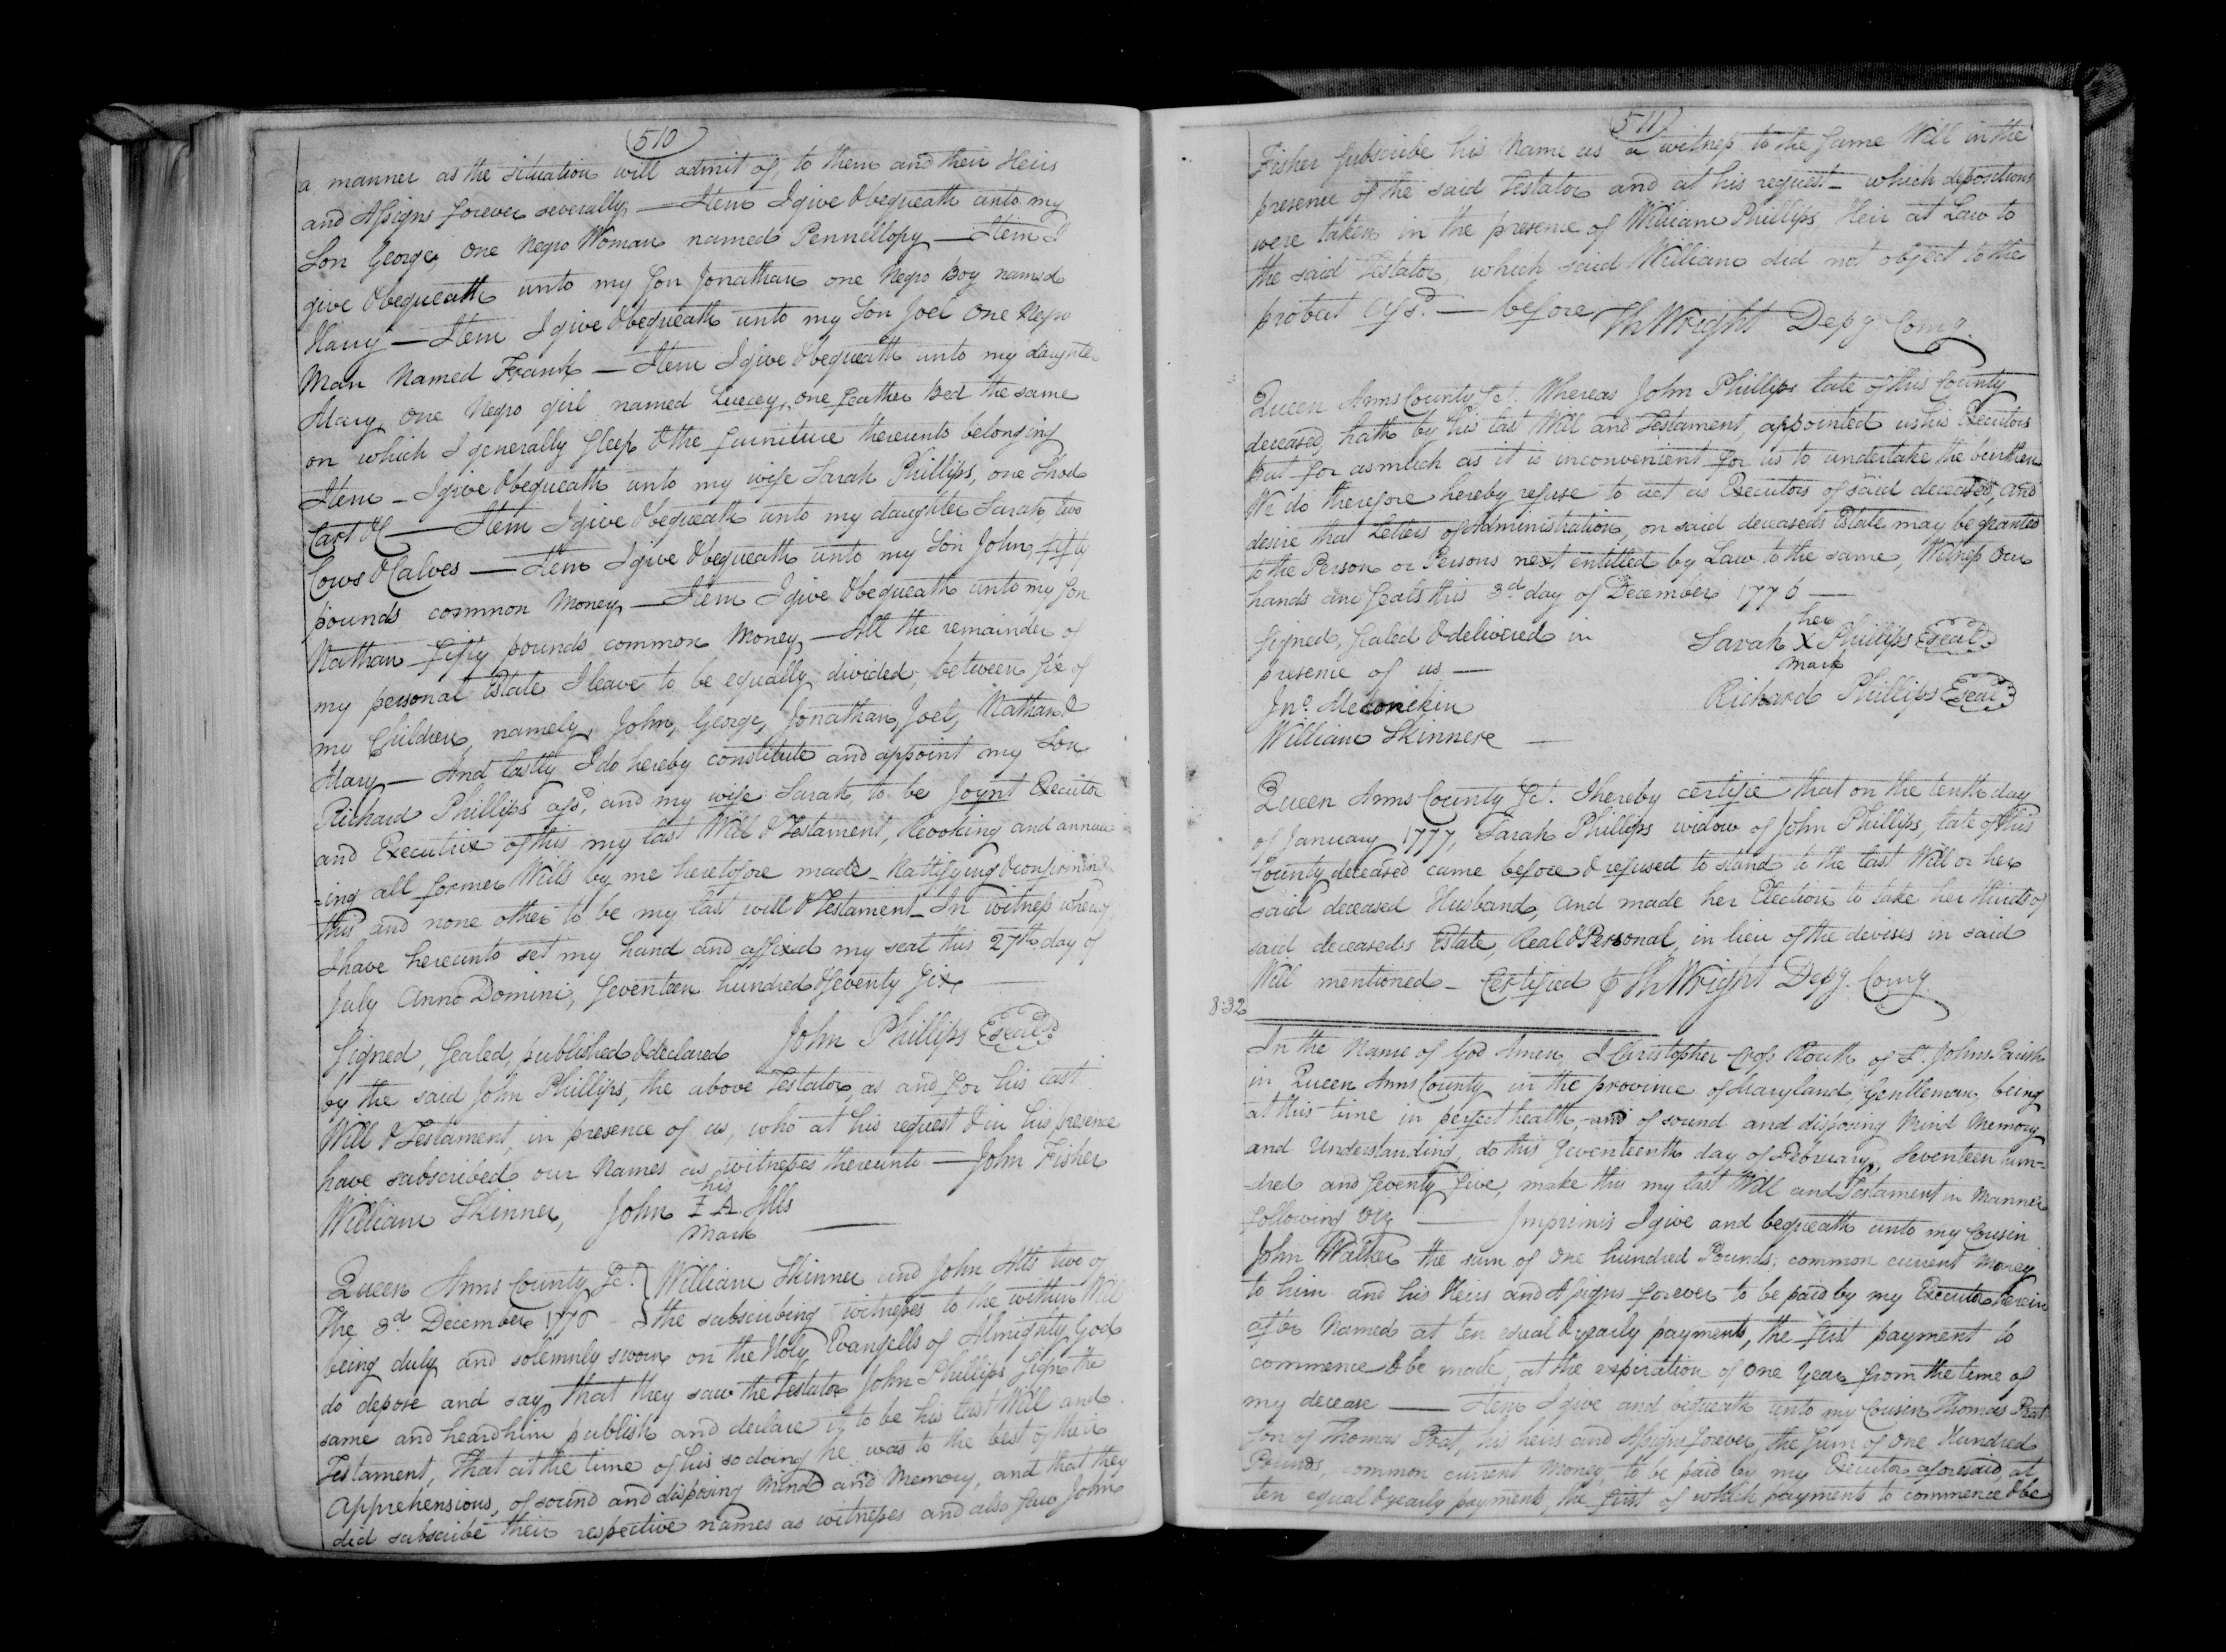 510
a manner as the situation will admit of, to them and their Heirs
and Assigns forever severally — Item I give & bequeath unto my
Son George, one Negro Woman named Pennellopy — Item I
give & bequeath unto my Son Jonathan one Negro Boy named
Harry — Item I give & bequeath unto my Son Joel One Negro
Man Named Frank — Item I give & bequeath unto my daughter
Mary, one Negro girl named Luecey, one feather Bed the same
on which I generally Sleep & the furniture thereunto belonging
Item – I give & bequeath unto my wife Sarah Phillips, one Shod
Cart &c — Item I give & bequeath unto my daughter Sarah, two
Cows & Calves — Item I give & bequeath unto my Son John, fifty
pounds common Money, — Item I give & bequeath unto my Son
Nathan fifty pounds common Money, — All the remainder of
my personal Estate I leave to be equally divided, between Six of
my Children, namely, John, George, Jonathan, Joel, Nathan &
Mary — And lastly I do hereby constitute and appoint my Son
Richard Phillips afsd, and my wife Sarah, to be Joynt Executor
and Executrix of this my last Will & Testament, Revoking and annull
=ing all former Wills by me heretofore made – Rattifying & confirming
this and none other to be my last will & Testament – In witness whereof
I have hereunto set my hand and affixed my seal this 27th day of
July Anno Domini, Seventeen hundred & Seventy Six —
Signed, Sealed, published & declared John Phillips Seal
by the said John Phillips, the above Testator, as and for his last
Will & Testament, in presence of us, who at his request & in his presence
have subscribed our Names as witnesses thereunto — John Fisher
his
William Skinner, John I A Alls —
Mark
Queen Anns County Sct. } William Skinner and John Alls two of
The 3d December 1776 – } the subscribing witnesses to the within Will
being duly and solemnly sworn on the Holy Evangells of Almighty God
do depose and say, that they saw the Testator John Phillips Sign the
same and heard him publish and declare it to be his last Will and
Testament, That at the time of his so doing he was to the best of their
Apprehensions, of sound and disposing Mind and Memory, and that they
did subscribe their respective names as witnesses and also saw John
511
Fisher Subscribe his Name as a witness to the same Will in the
presence of the said Testator and at his request – which depositions
were taken in the presence of William Phillips, Heir at Law to
the said Testator, which said William did not object to the
probat afsd. — before Th Wright Depy Comy.
Queen Anns County Sct. Whereas John Phillips late of this County
deceased, hath by his last Will and Testament, appointed us his Executors
But for as much as it is inconvenient for us to undertake the burthen
We do therefore hereby refuse to act as Executors of said deceased, and
desire that Letters of Administration, on said deceased's Estate may be granted
to the Person or Persons next entitled by Law to the same, Witness our
hands and Seals this 3d day of December 1776 —
her
Signed, Sealed & delivered in Sarah X Phillips Seal
mark
presence of us —
Richard Phillips Seal
Jno. Meconikin
William Skinnere —
Queen Anns County Sct. I hereby certifie that on the tenth day
of January 1777, Sarah Phillips widow of John Phillips, late of this
County deceased came before & refused to stand to the last Will or her
said deceased Husband, and made her Election to take her thirds of
said deceaseds Estate, Real & Personal, in lieu of the devises in said
Will mentioned – Certified Th Wright Depy. Comy.
832
In the Name of God Amen, I Christopher Cross Routh of St. Johns Parish
in Queen Anns County in the province of Maryland, Gentleman, being
at this time in perfect health, and of sound and disposing Mind Memory
and Understanding, do this Seventeenth day of February, Seventeen hun=
=dred and Seventy five, make this my last Will and Testament in Manner
following Viz — Imprimis I give and bequeath unto my Cousin
John Walker the sum of One hundred Pounds, common current Money
to him and his Heirs and Assigns forever to be paid by my Executor herein
after Named at ten equal & yearly payments, the first payment to
commence & be made, at the expiration of one Year from the time of
my decease — Item I give and bequeath unto my Cousin Thomas Prat
Son of Thomas Prat, his heirs and Assigns forever, the Sum of One Hundred
Pounds, common current Money, to be paid by my Executor aforesaid, at
ten equal & yearly payments, the first of which payments to commence & be